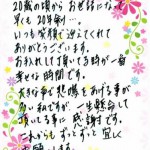 20歳の頃からお世話になって
早くも20年余り…
いつも笑顔で迎えてくれて
ありがとうございます。
おしゃれして頂いてる時が一番
幸せな時間です。
大きな事で悲鳴をあげる事が
多い私ですが、一生懸命して
頂いてる事に感謝です。
これからもずっとずっと宜しく
お願いします。